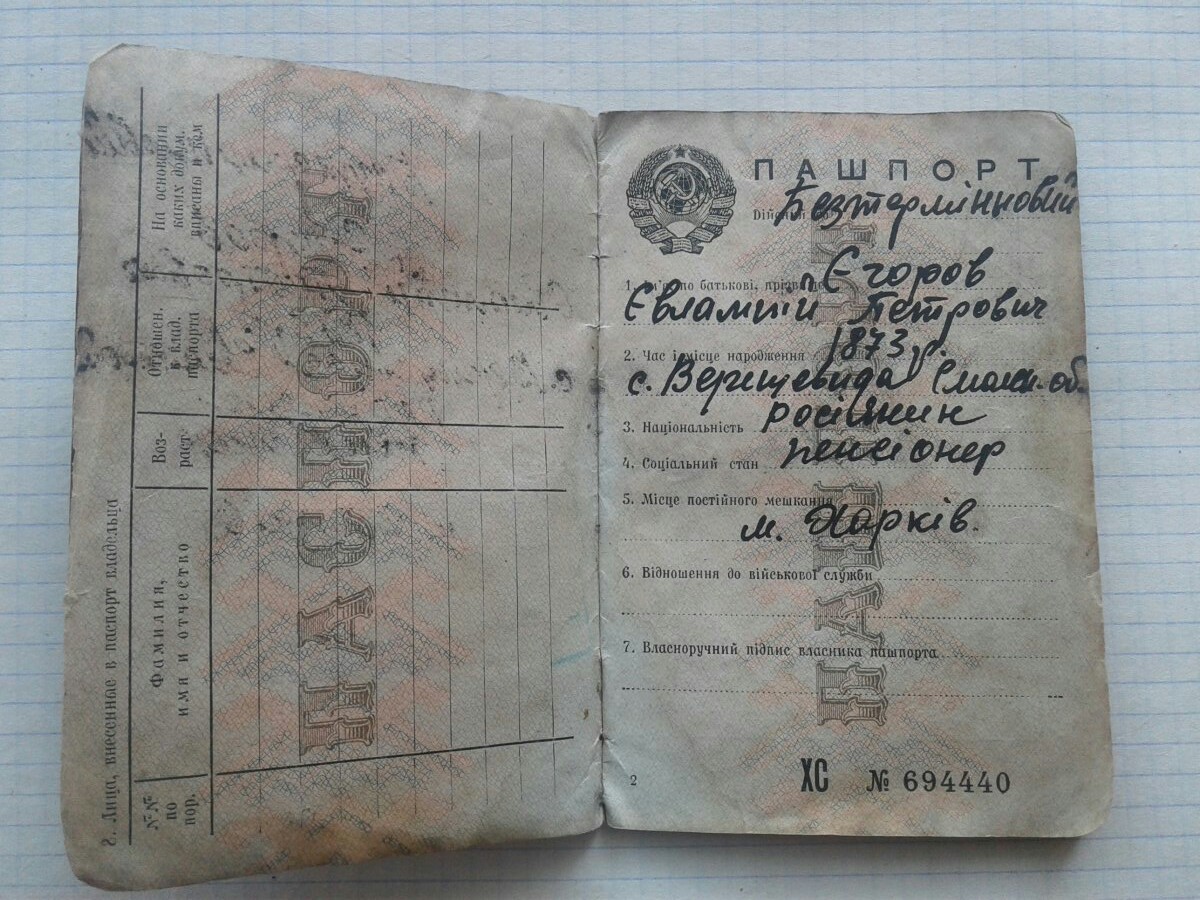 8. Лица, внесенные в паспорт владельца
№№ по пор.
Фамилия, имя и отчество
Воз- раст.
Отношен. к влад. паспорта
На основании каких докум. вписаны и кем
ПАСПОРТ
ПАШПОРТ
Безтерміновий
Єгоров
1. батькові,
Євлампій Петрович
1873 р.
2. Час і місце народження
с. Смолен. об.
росіянин
3. Національність
пенсіонер
4. Соціальний стан
5. Місце постійного мешкання
м. Харків.
6. Відношення до військової служби
7. Власноручний підпис власника пашпорта
2
ХС № 694440